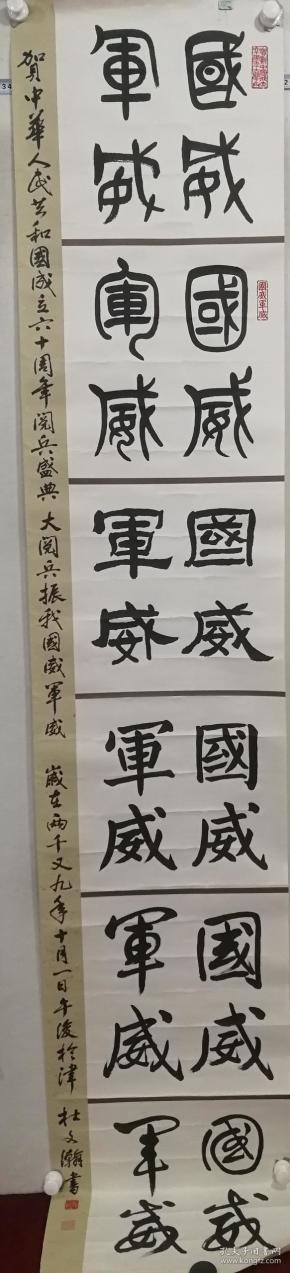 國威
軍威
國威
軍威
國威
軍威
國威
軍威
國威
軍威
國威
军威
賀中華人民共和國成立六十周年閱兵盛典 大閱兵振我國威軍威 歲在兩千又九年十月一日午後於津 杜文瀚書
國威軍威
孔夫子旧书网